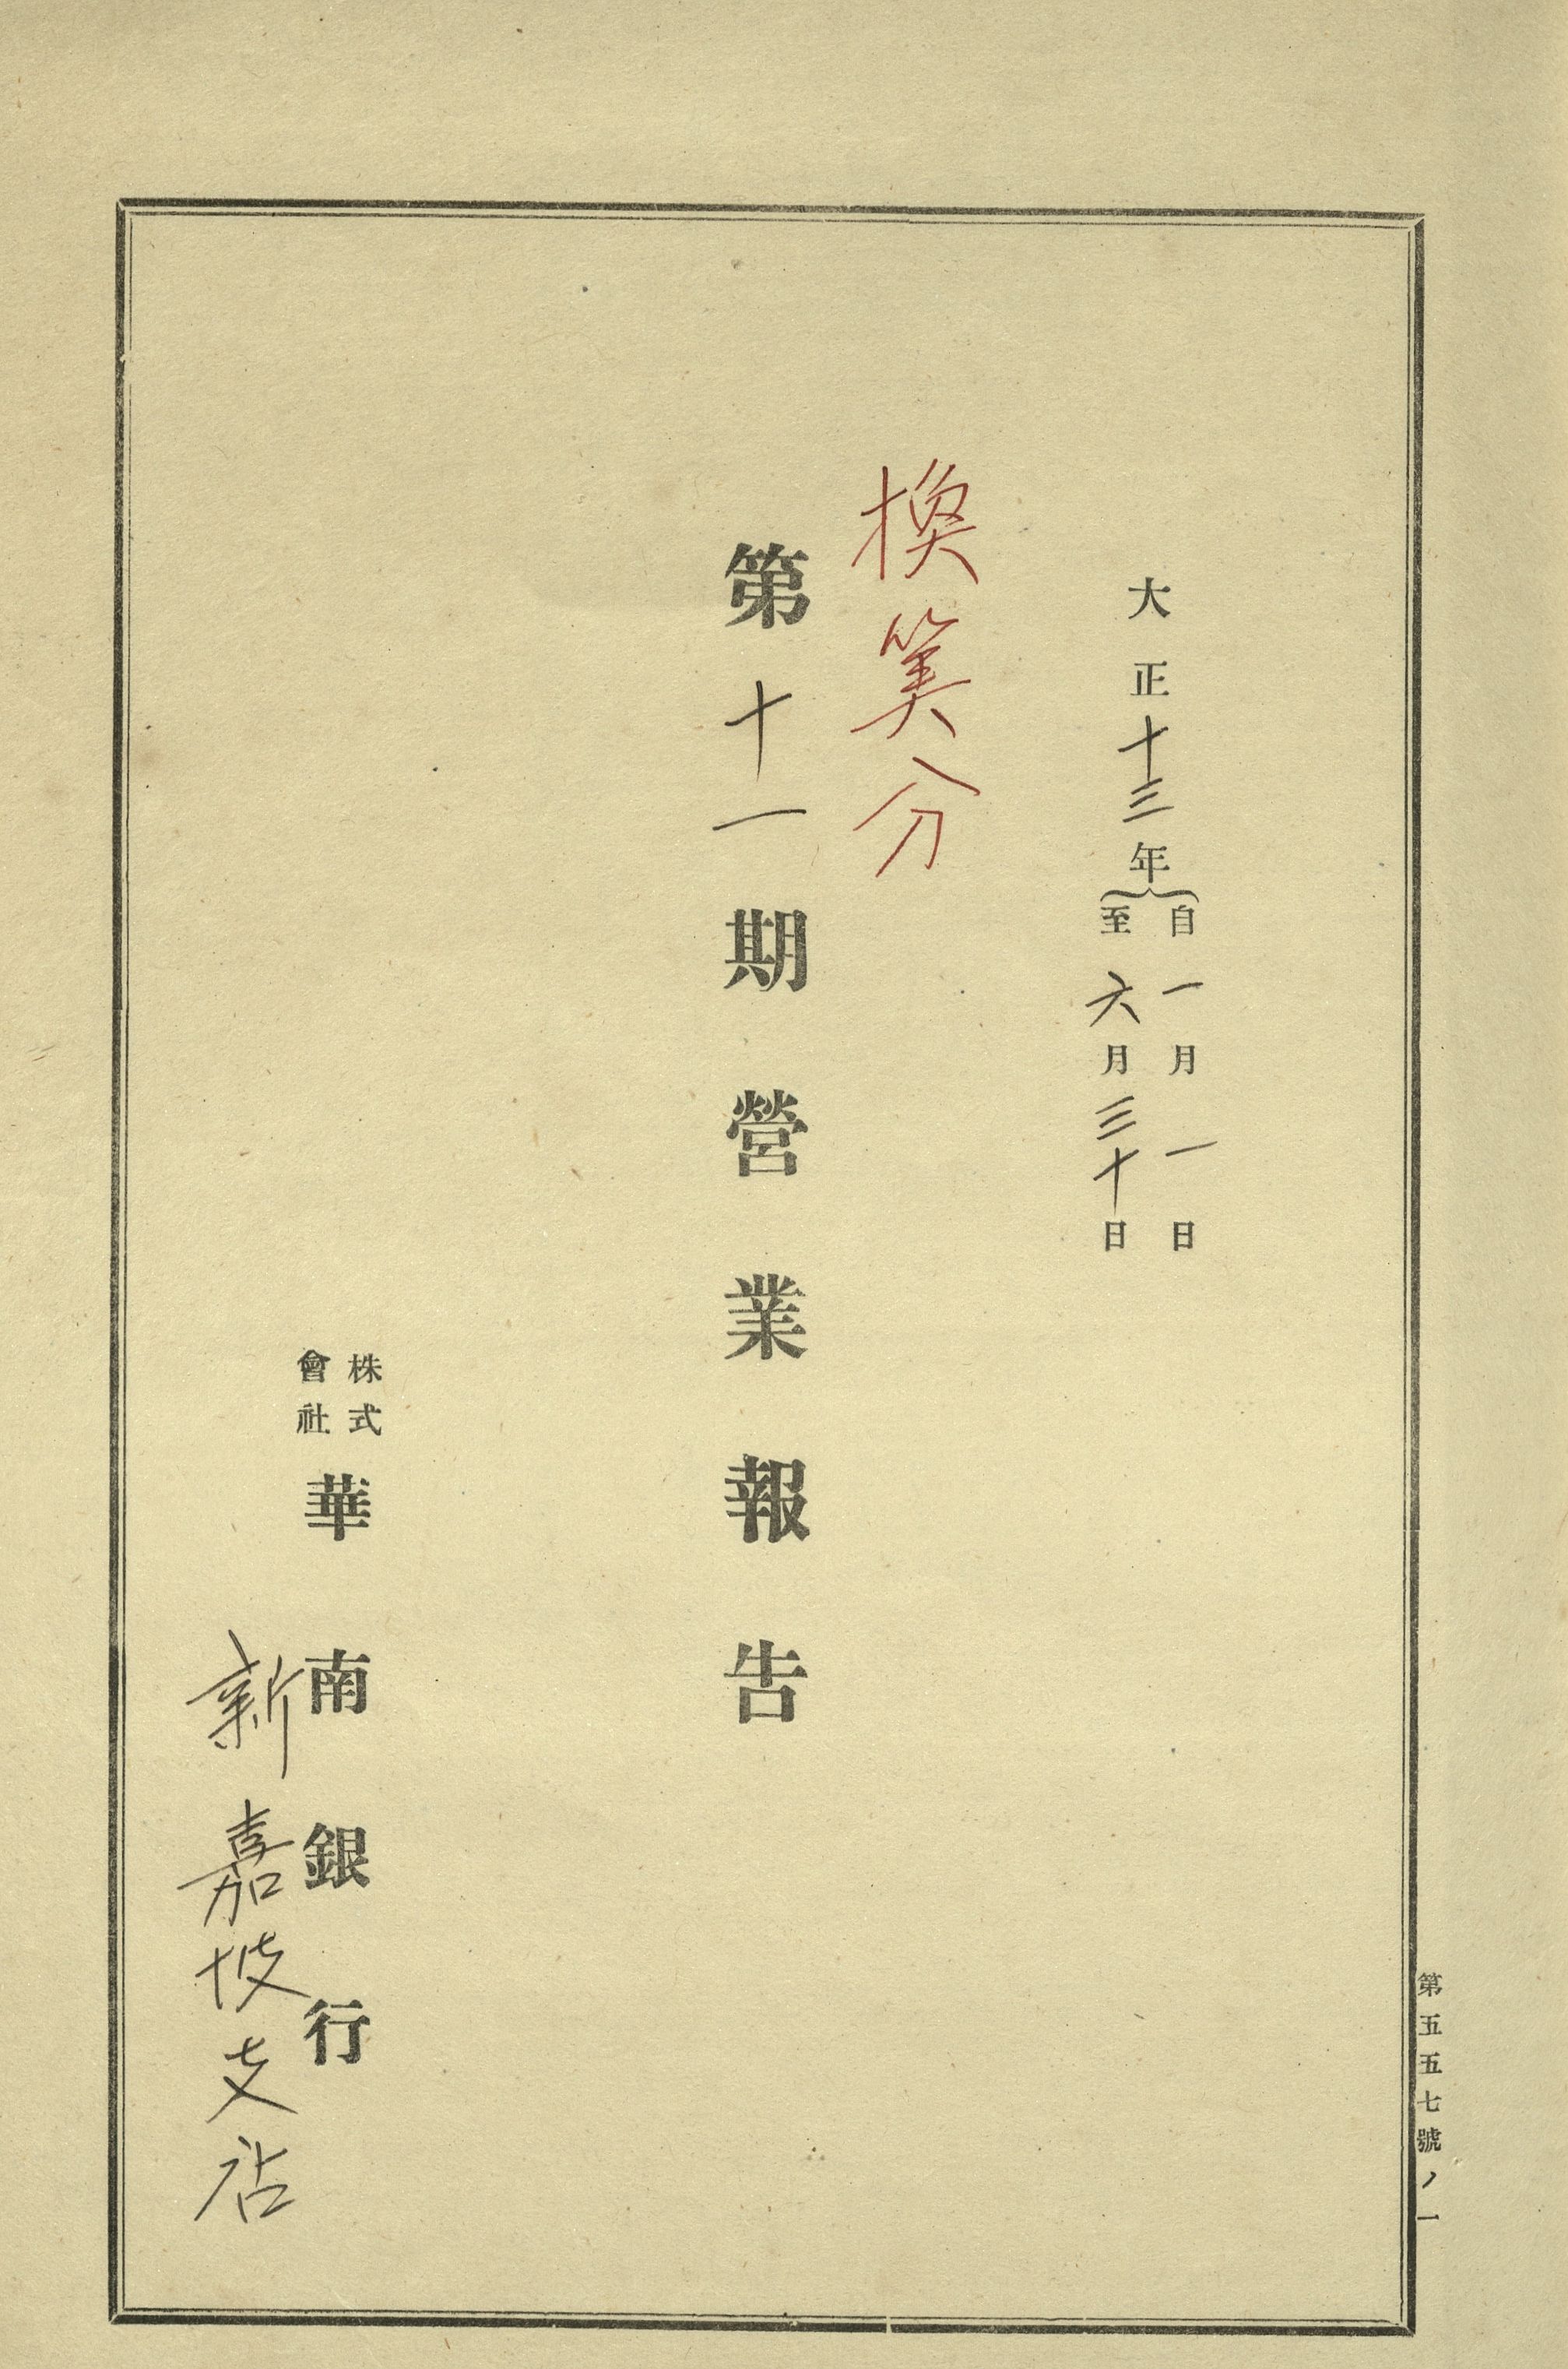 第五五七號ノ一
大正十三年
自一月一日
至六月三十日
換算分
第十一期營業報告
株式
會社
華南銀行
新嘉坡支店